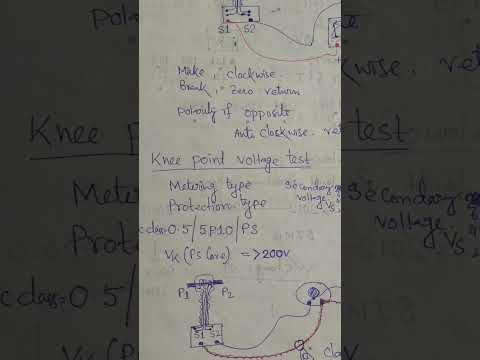 S1 S2
Make, clockwise.
Break, zero return
Polarity if opposite
Anti Clockwise.
Knee point voltage test
Metering type
Protection type
Secondary
voltage
Vs
c class = 0.5/5P10/PS
Vk (PS Core) => 200V
P1 P2
S1 S2